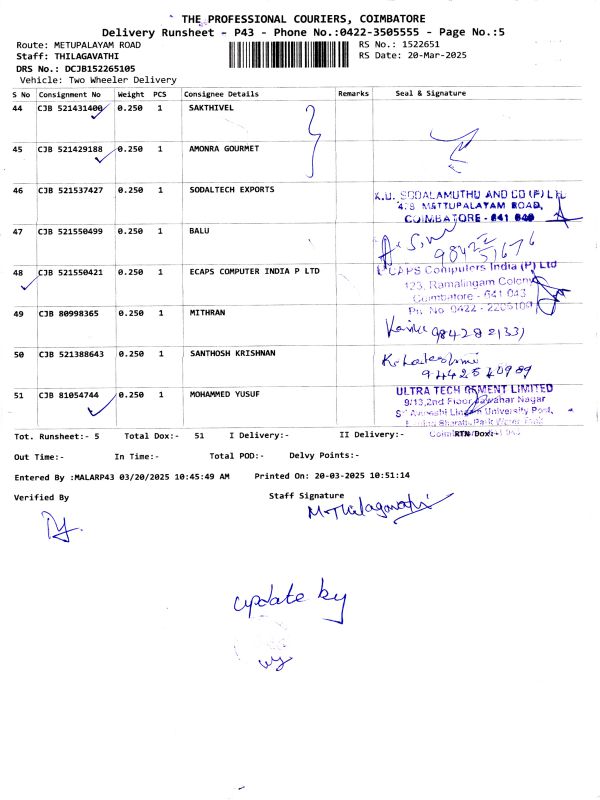 THE PROFESSIONAL COURIERS, COIMBATORE
Delivery Runsheet - P43 - Phone No.:0422-3505555 - Page No.:5
Route: METUPALAYAM ROAD RS No.: 1522651
Staff: THILAGAVATHI RS Date: 20-Mar-2025
DRS No.: DCJB152265105
Vehicle: Two Wheeler Delivery
S No Consignment No Weight PCS Consignee Details Remarks Seal & Signature
44 CJB 521431400 0.250 1 SAKTHIVEL
45 CJB 521429188 0.250 1 AMONRA GOURMET
46 CJB 521537427 0.250 1 SODALTECH EXPORTS
K.U. SODALAMUTHU AND CO (P) LTD
478 METTUPALAYAM ROAD,
COIMBATORE - 641 043
47 CJB 521550499 0.250 1 BALU
48 CJB 521550421 0.250 1 ECAPS COMPUTER INDIA P LTD
ECAPS Computers India (P) Ltd
123, Ramalingam Colony
Coimbatore - 641 043
Ph. No. 0422 - 2206100
49 CJB 80998365 0.250 1 MITHRAN
50 CJB 521388643 0.250 1 SANTHOSH KRISHNAN
51 CJB 81054744 0.250 1 MOHAMMED YUSUF
ULTRA TECH CEMENT LIMITED
9/13, 2nd Floor, Jawahar Nagar
University Post,
Tot. Runsheet:- 5 Total Dox:- 51 I Delivery:- II Delivery:- RTN Dox:-
Out Time:- In Time:- Total POD:- Delvy Points:-
Entered By :MALARP43 03/20/2025 10:45:49 AM Printed On: 20-03-2025 10:51:14
Verified By Staff Signature
M.Thilagavathi
update by